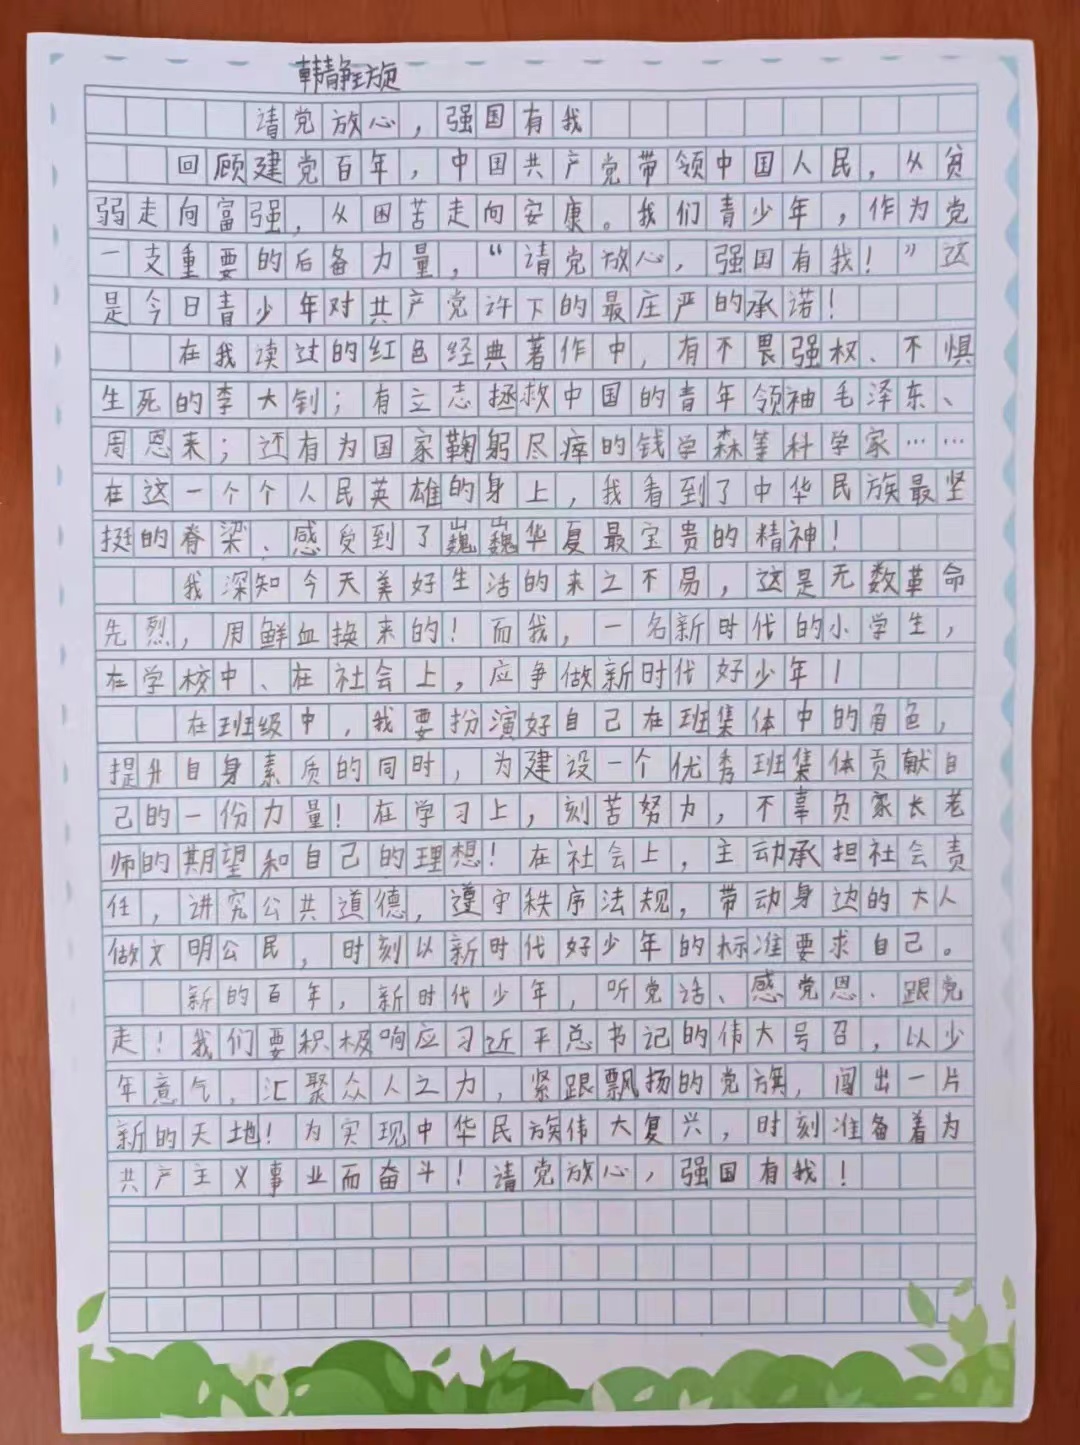 韩静璇
请党放心，强国有我
回顾建党百年，中国共产党带领中国人民，从贫
弱走向富强，从困苦走向安康。我们青少年，作为党
一支重要的后备力量，“请党放心，强国有我！”这
是今日青少年对共产党许下的最庄严的承诺！
在我读过的红色经典著作中，有不畏强权、不惧
生死的李大钊；有立志拯救中国的青年领袖毛泽东、
周恩来；还有为国家鞠躬尽瘁的钱学森等科学家……
在这一个个人民英雄的身上，我看到了中华民族最坚
挺的脊梁、感受到了巍巍华夏最宝贵的精神！
我深知今天美好生活的来之不易，这是无数革命
先烈，用鲜血换来的！而我，一名新时代的小学生，
在学校中、在社会上，应争做新时代好少年！
在班级中，我要扮演好自己在班集体中的角色，
提升自身素质的同时，为建设一个优秀班集体贡献自
己的一份力量！在学习上，刻苦努力，不辜负家长老
师的期望和自己的理想！在社会上，主动承担社会责
任，讲究公共道德，遵守秩序法规，带动身边的大人
做文明公民，时刻以新时代好少年的标准要求自己。
新的百年，新时代少年，听党话、感党恩、跟党
走！我们要积极响应习近平总书记的伟大号召，以少
年意气，汇聚众人之力，紧跟飘扬的党旗，闯出一片
新的天地！为实现中华民族伟大复兴，时刻准备着为
共产主义事业而奋斗！请党放心，强国有我！